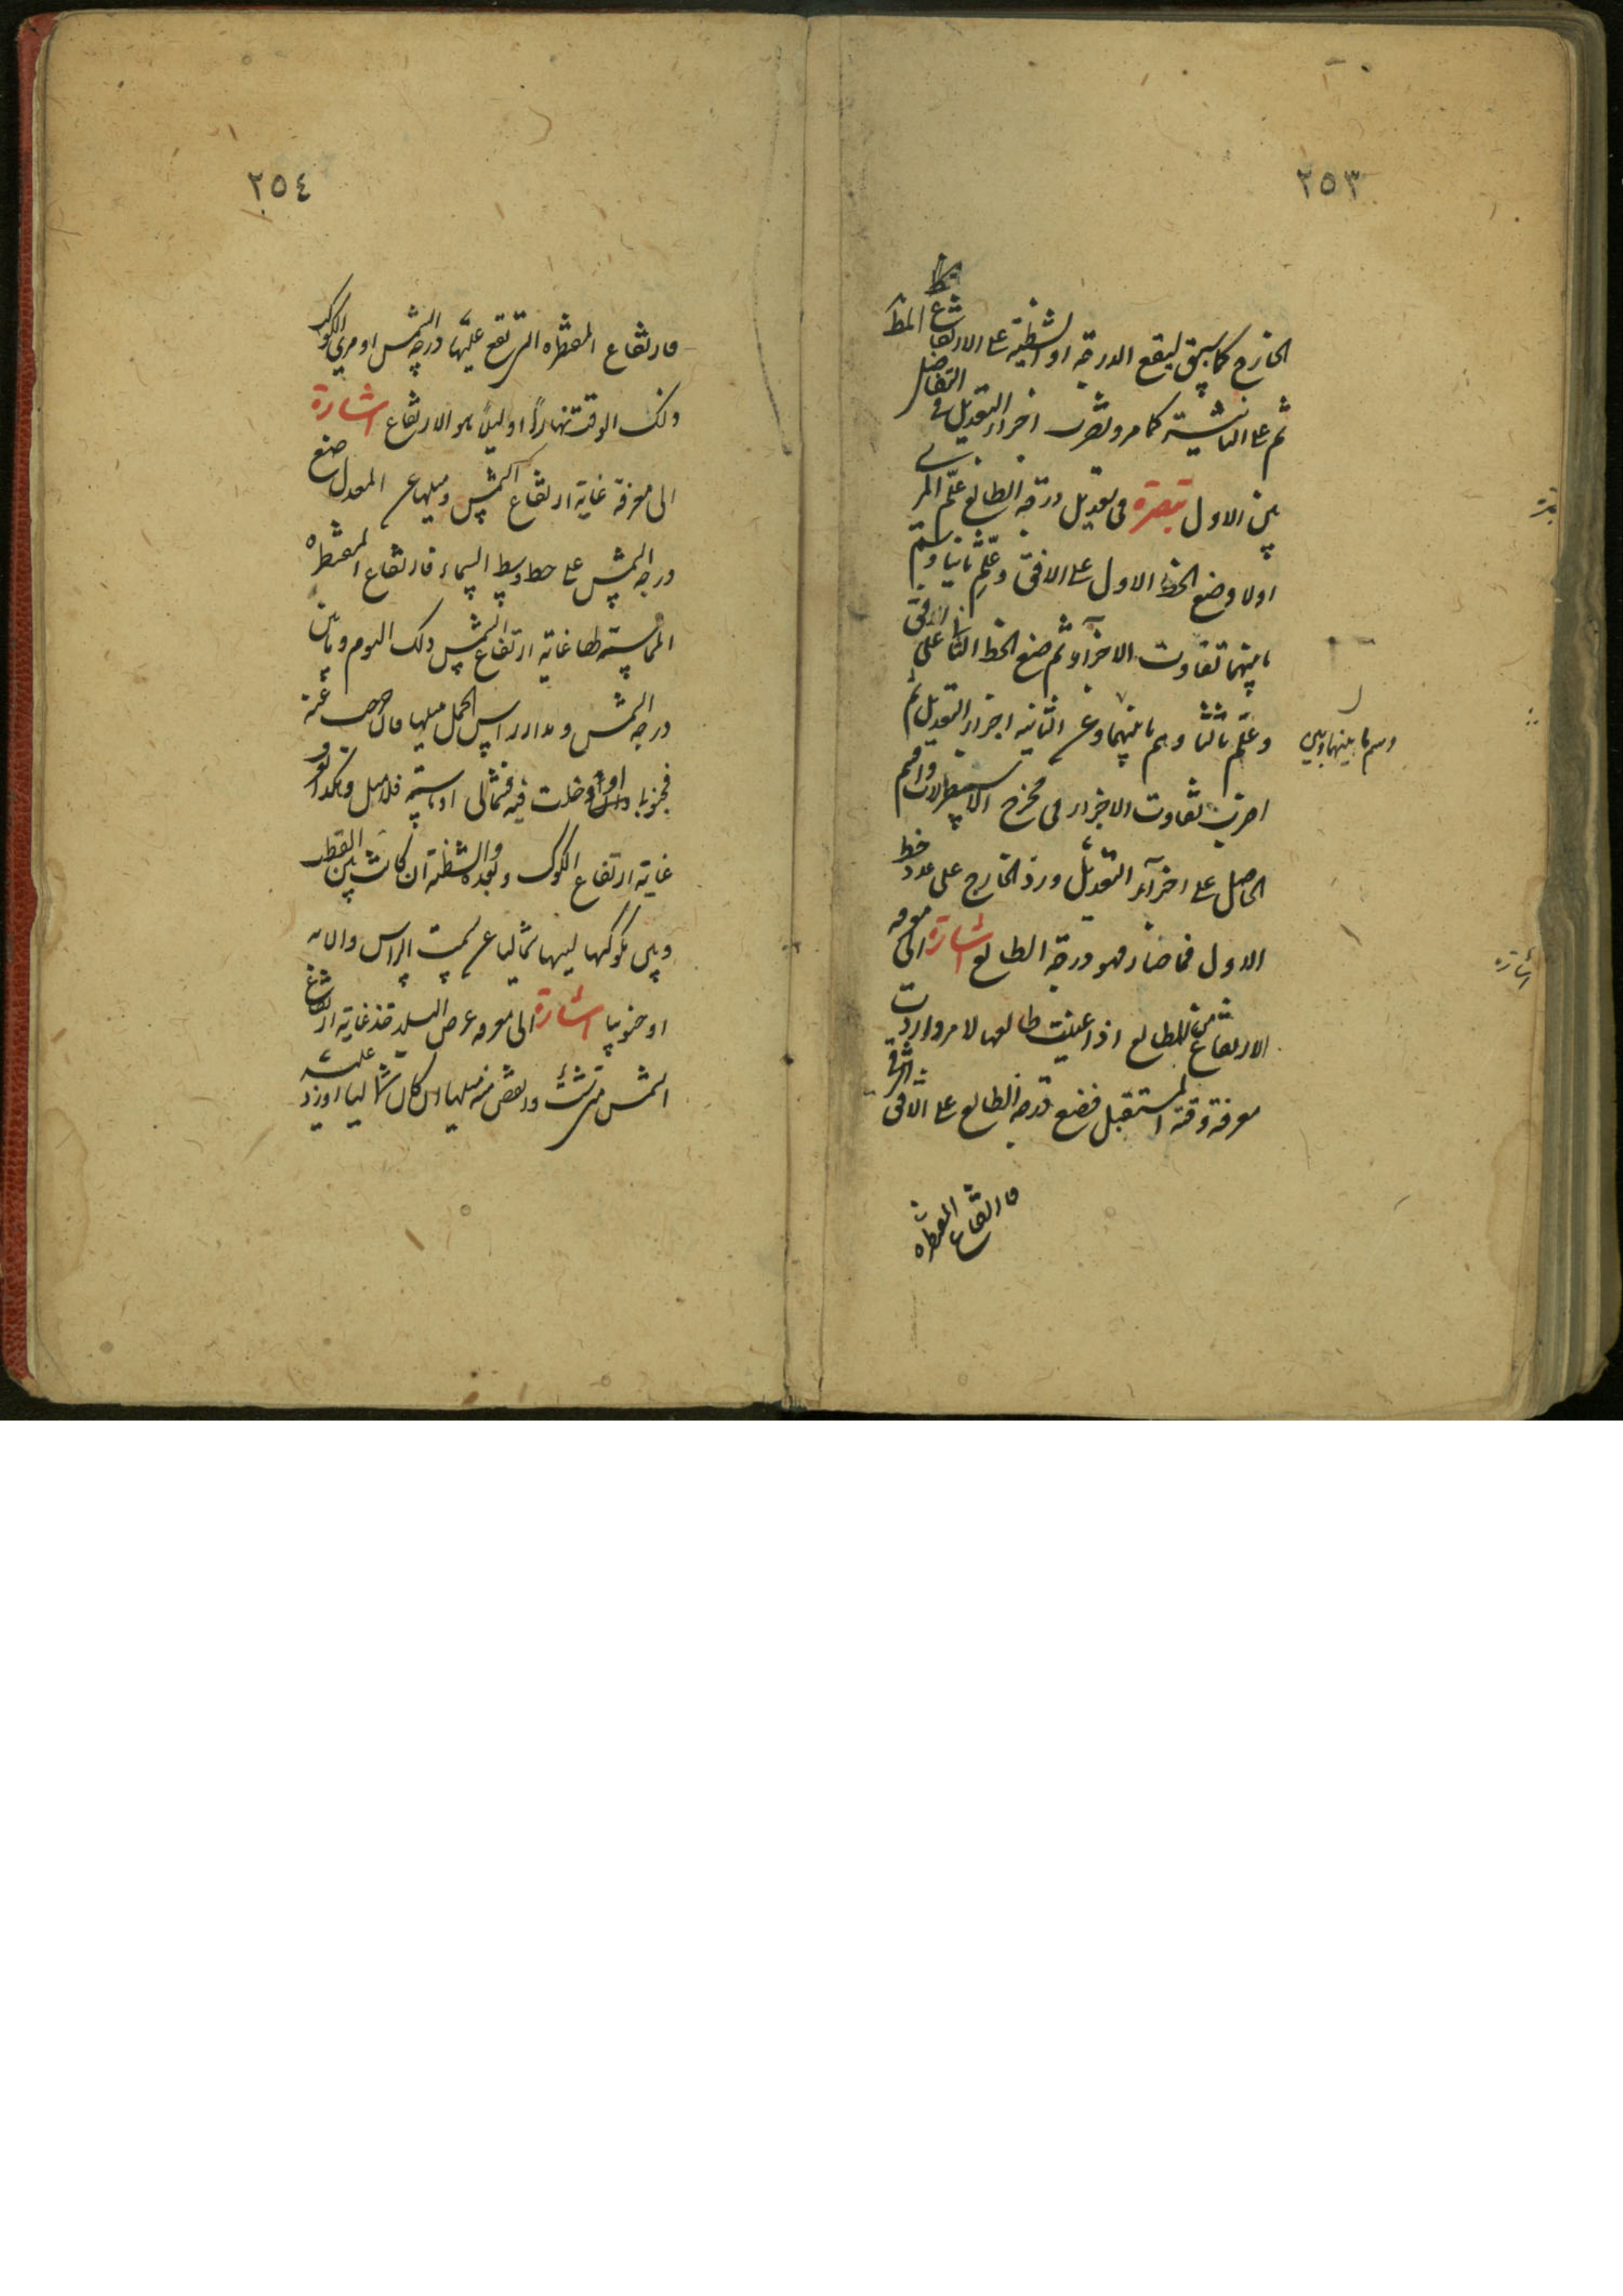 ٢٥٣
الخارج كما سبق ليقع الدرجة او الشظية على الارتفاع المط
ثم على الثانية كما مر وتضرب اجزاء التعديل في التفاضل
بين الاول تبصرة في تعديل درجة الطالع علّم المري
اولا وضع الخط الاول على الافق وعلّم ثانيا وسم
ما بينهما تفاوت الاجزاء ثم ضع الخط الثاني على الافق
وعلّم ثالثا وسم ما بينهما وعن الثانية اجزاء التعديل ثم
وسم ما بينهما وبين
اضرب تفاوت الاجزاء في مخرج الاسطرلاب واقسم
الحاصل على اجزاء التعديل وزد الخارج على عدد خط
الاول فما صار فهو درجة الطالع اشارة الى معرفة
الارتفاع من الطالع اذا عينت طالعها لامر واردت
معرفة وقته المستقبل فضع درجة الطالع على الافق الشرقي
فارتفاع المقنطرة
تبصرة
اشارة
٢٥٤
فارتفاع المقنطره التي تقع عليها درجة الشمس او مري الكوكب
ذلك الوقت نهاراً او ليلاً هو الارتفاع اشارة
الى معرفة غاية ارتفاع الشمس وميلها عن المعدل ضع
درجة الشمس على خط وسط السماء فارتفاع المقنطره
المماسته لها غاية ارتفاع الشمس ذلك اليوم وما بين
درجة الشمس ومدار راس الحمل ميلها فان خرجت عنه
فجنوبا وان دخلت فيه فشمالي او ماسته فلا ميل وهكذا
غاية ارتفاع الكوكب وبعده والشظية ان كانت بين القطر
وبين كوكبها شماليا عن سمت الراس والا
او جنوبيا اشارة الى معرفة عرض البلد خذ غاية ارتفاع
الشمس متى شئت وانقص منه ميلها ان كان شماليا او زد عليه